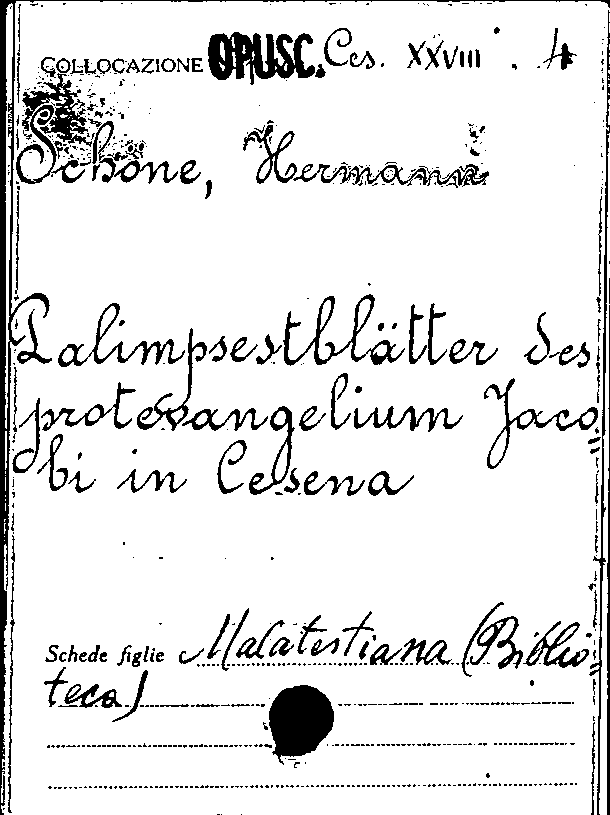 COLLOCAZIONE OPUSC. Ces. XXVIII . 4
Schöne, Hermann
Palimpsestblätter des
protevangelium Jaco=
bi in Cesena
Schede figlie Malatestiana (Biblio=
teca)